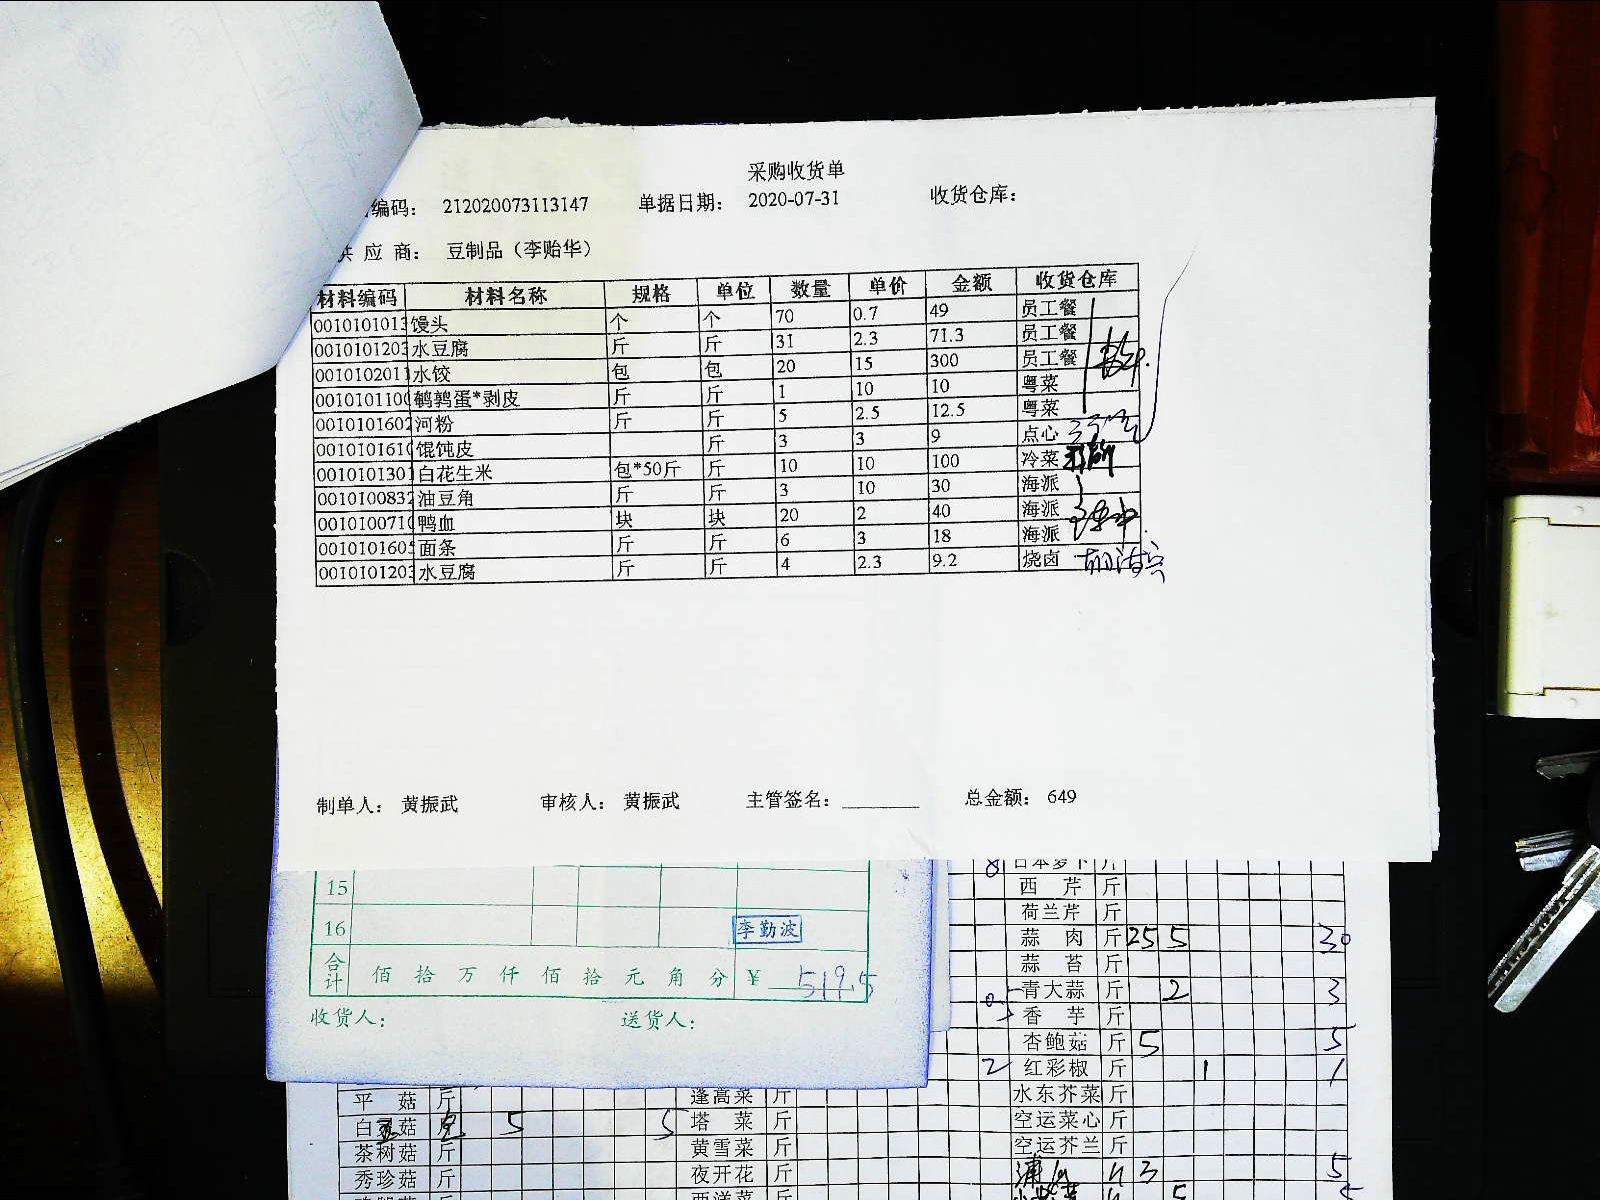 采购收货单
编码: 212020073113147 单据日期: 2020-07-31 收货仓库:
供 应 商: 豆制品（李贻华）
材料编码 材料名称 规格 单位 数量 单价 金额 收货仓库
0010101013 馒头 个 个 70 0.7 49 员工餐
0010101203 水豆腐 斤 斤 31 2.3 71.3 员工餐
0010102011 水饺 包 包 20 15 300 员工餐
0010101100 鹌鹑蛋*剥皮 斤 斤 1 10 10 粤菜
0010101602 河粉 斤 斤 5 2.5 12.5 粤菜
0010101610 馄饨皮 斤 3 3 9 点心
0010101301 白花生米 包*50斤 斤 10 10 100 冷菜
0010100832 油豆角 斤 斤 3 10 30 海派
0010100710 鸭血 块 块 20 2 40 海派
0010101605 面条 斤 斤 6 3 18 海派
0010101203 水豆腐 斤 斤 4 2.3 9.2 烧卤
制单人: 黄振武 审核人: 黄振武 主管签名: 总金额: 649
15
16 李勤波
合计 佰 拾 万 仟 佰 拾 元 角 分 ¥ 519.5
收货人: 送货人:
8 日本萝卜 斤
西 芹 斤
荷兰芹 斤
蒜 肉 斤 25 5 30
蒜 苔 斤
青大蒜 斤 2 3
0.5 香 芋 斤
杏鲍菇 斤 5 5
2 红彩椒 斤 1 1
水东芥菜 斤
空运菜心 斤
空运芥兰 斤
3 5
5
平 菇 斤 蓬蒿菜 斤
白 菇 5 5 塔 菜 斤
茶树菇 斤 黄雪菜 斤
秀珍菇 斤 夜开花 斤
西洋菜 斤